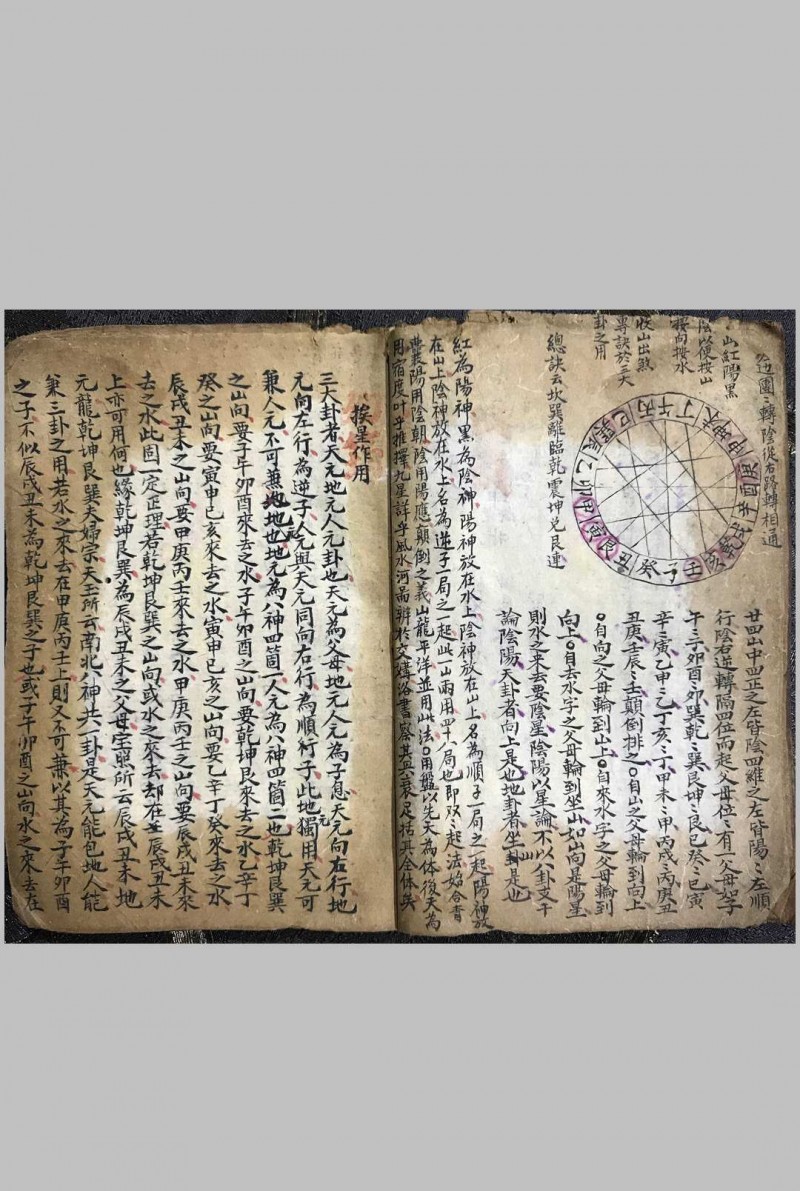 邊圖〻轉陰從右路轉相通
山紅陽黑
陰以便按山
按向按水
收山出煞
專訣於三大
卦之用
總訣云坎巽離臨乾震坤兌艮連
巳丙午丁未坤申庚酉辛戌乾亥壬子癸丑艮寅甲卯乙辰巽
廿四山中四正之左皆陰四維之左皆陽〻左順
行陰右逆轉隔四位而起父母位〻有一父母如子
午〻卯酉〻卯巽乾〻巽艮坤〻艮巳癸〻巳寅
辛〻寅乙申〻乙丁亥〻丁甲未〻甲丙戌〻丙庚丑
丑庚壬辰〻壬顛倒排之○自山之父母輪到向上
○自向之父母輪到山上○自來水字之父母輪到
向上○自去水字之父母輪到坐山如山向是陽星
則水之來去要陰星陰陽以星論不以八卦支干
論陰陽天卦者向上是也地卦者坐卦是也
紅為陽神黑為陰神陽神放在水上陰神放在山上名為順子一局之一起陽神放
在山上陰神放在水上名為逆子一局之一起此一山兩用四十八局也即双〻起法始合青
囊陽用陰朝陰用陽應顛倒之義山龍平洋並用此法○用盤以先天為体後天為
用宿度叶乎推擇九星詳乎風水河啚辨於交媾洛書察其興衰足括其全体矣
挨星作用
三大卦者天元地元人元卦也天元為父母地元人元為子息天元向右行地
元向左行為逆子人元與天元同向右行為順行子此地獨用天元可
兼人元不可兼地元地也地元為八神四箇一人元為八神四箇二也乾坤艮巽
之山向要子午卯酉來去之水子午卯酉之山向要乾坤艮巽來去之水乙辛丁
癸之山向要寅申巳亥來去之水寅申巳亥之山向要乙辛丁癸來去之水
辰戌丑未之山向要甲庚丙壬來去之水甲庚丙壬之山向要辰戌丑未來
去之水此固一定正理若乾坤艮巽之山向或水之來去却在辰戌丑未
上亦可用何也緣乾坤艮巽為辰戌丑未之父母宝照所云辰戌丑未地
元龍乾坤艮巽夫婦宗天玉所云南北八神共一卦是天元能包地人能
兼三卦之用若水之來去在甲庚丙壬上則又不可兼以其為子午卯酉
之子不似辰戌丑未為乾坤艮巽之子也或子午卯酉之山向水之來去在